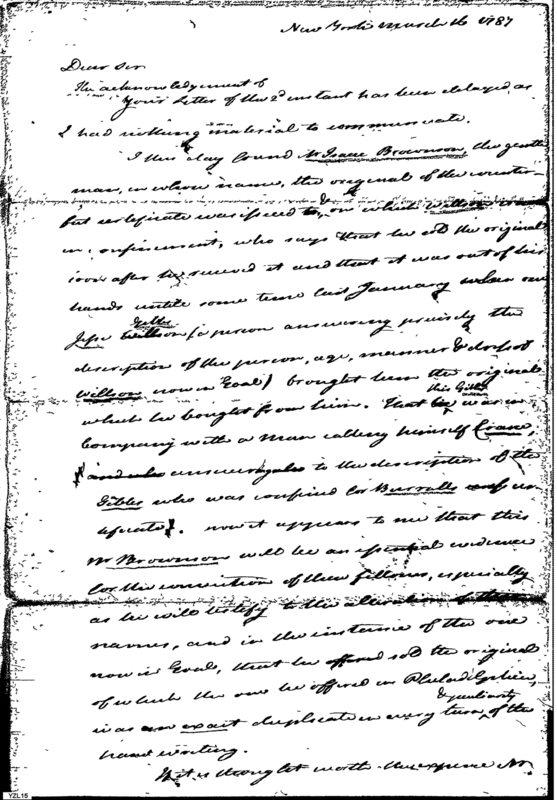 New York March 16 1787
Dear Sir
The acknowledgement of
Your Letter of the 2d instant has been delayed as
I had nothing material to communicate.
I this day found Mr Isaac Brownson, the gentle
man, in whose name, the original of the counter-
feit certificate was issued to, & on which Willson is now
in confinement, who says that he sold the original
soon after he received it and that it was out of his
hands untill some time last January when one
Gibbs
Jesse Willson (a person answering precisely the
description of the person, age, manner & dress of
Willson now in Goal) brought him the original
this Gibbs
which he bought from him. That he was in
company with a man calling himself Crane,
answerable to the description of the
Gibbs who was confined for Burralls
tificate. now it appears to me that this
Mr Brownson will be an essential evidence
for the conviction of these fellows, especially
as he will testify to the alteration of their
names, and in the instance of the one
now in Goal, that he offered sold the original
of which the one he offered in Philadelphia,
& peculiarity
was an exact duplicate in every turn of the
hand writing.
If it is thought worth the expence Mr.
YZL15